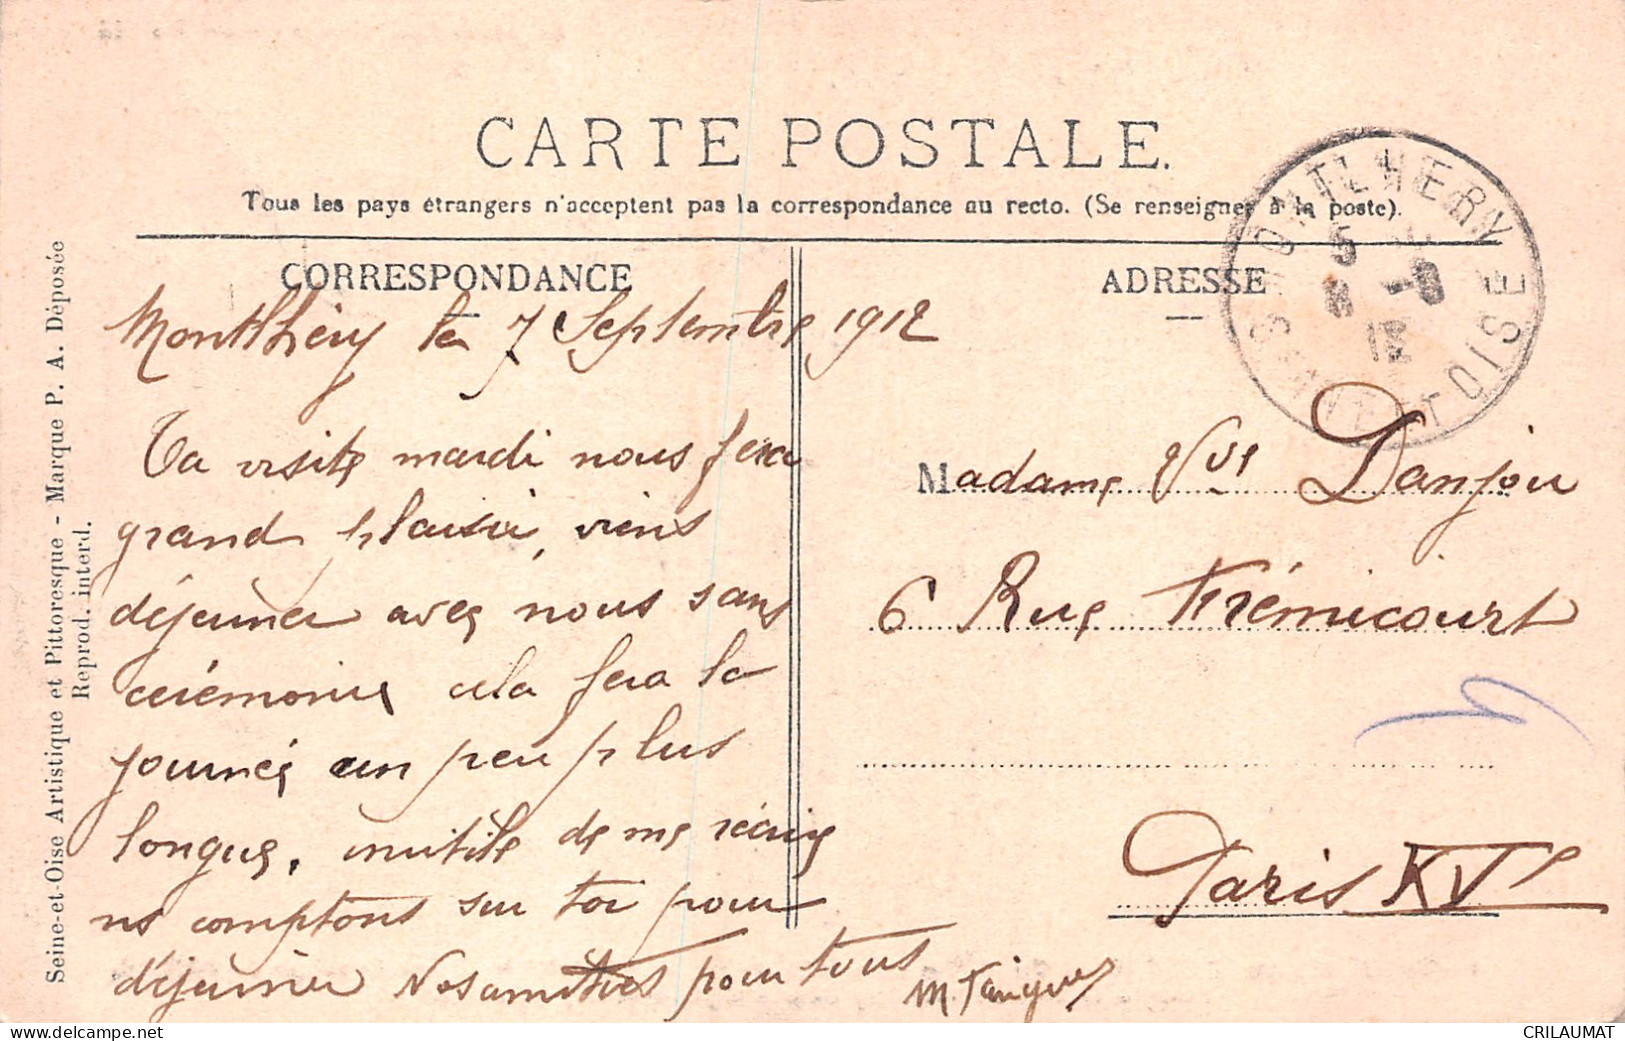 CARTE POSTALE.
Tous les pays étrangers n'acceptent pas la correspondance au recto. (Se renseigner à la poste).
Seine-et-Oise Artistique et Pittoresque - Marque P. A. Déposée
Reprod. interd.
CORRESPONDANCE
Montlhéry le 7 Septembre 1912
Ta visite mardi nous fera
grand plaisir, viens
déjeuner avec nous sans
cérémonie cela fera la
journée un peu plus
longue, inutile de me récrire
ns comptons sur toi pour
déjeuner Nos amitiés pour tous
ADRESSE
MONTLHERY
5
8 -9
12
SEINE ET OISE
Madame Vve Danjou
6 Rue Frémicourt
Paris XVe
CRILAUMAT